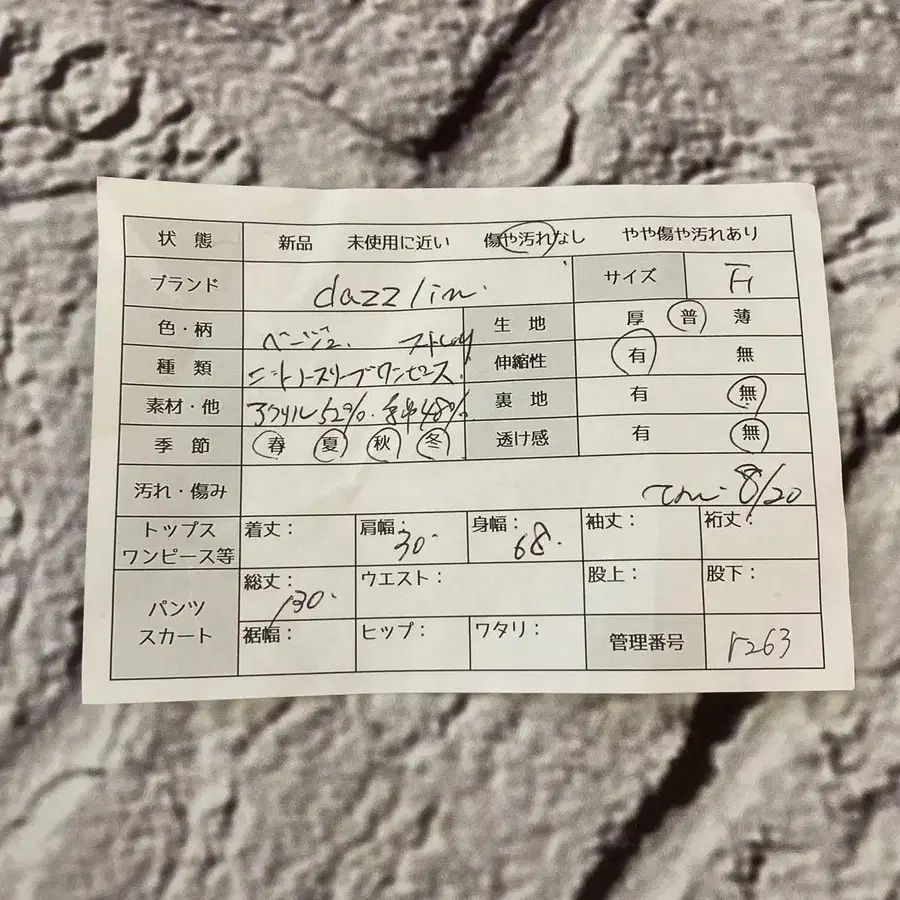 状態 新品 未使用に近い 傷や汚れなし やや傷や汚れあり
ブランド dazzlin サイズ F
色・柄 ベージュ 生地 厚 普 薄
種類 ニットノースリーブワンピース 伸縮性 有 無
素材・他 アクリル52% 48% 裏地 有 無
季節 春 夏 秋 冬 透け感 有 無
汚れ・傷み 8/20
トップス ワンピース等 着丈: 肩幅: 30. 身幅: 68. 袖丈: 裄丈:
パンツ スカート 総丈: 130. ウエスト: 股上: 股下:
裾幅: ヒップ: ワタリ: 管理番号 r263